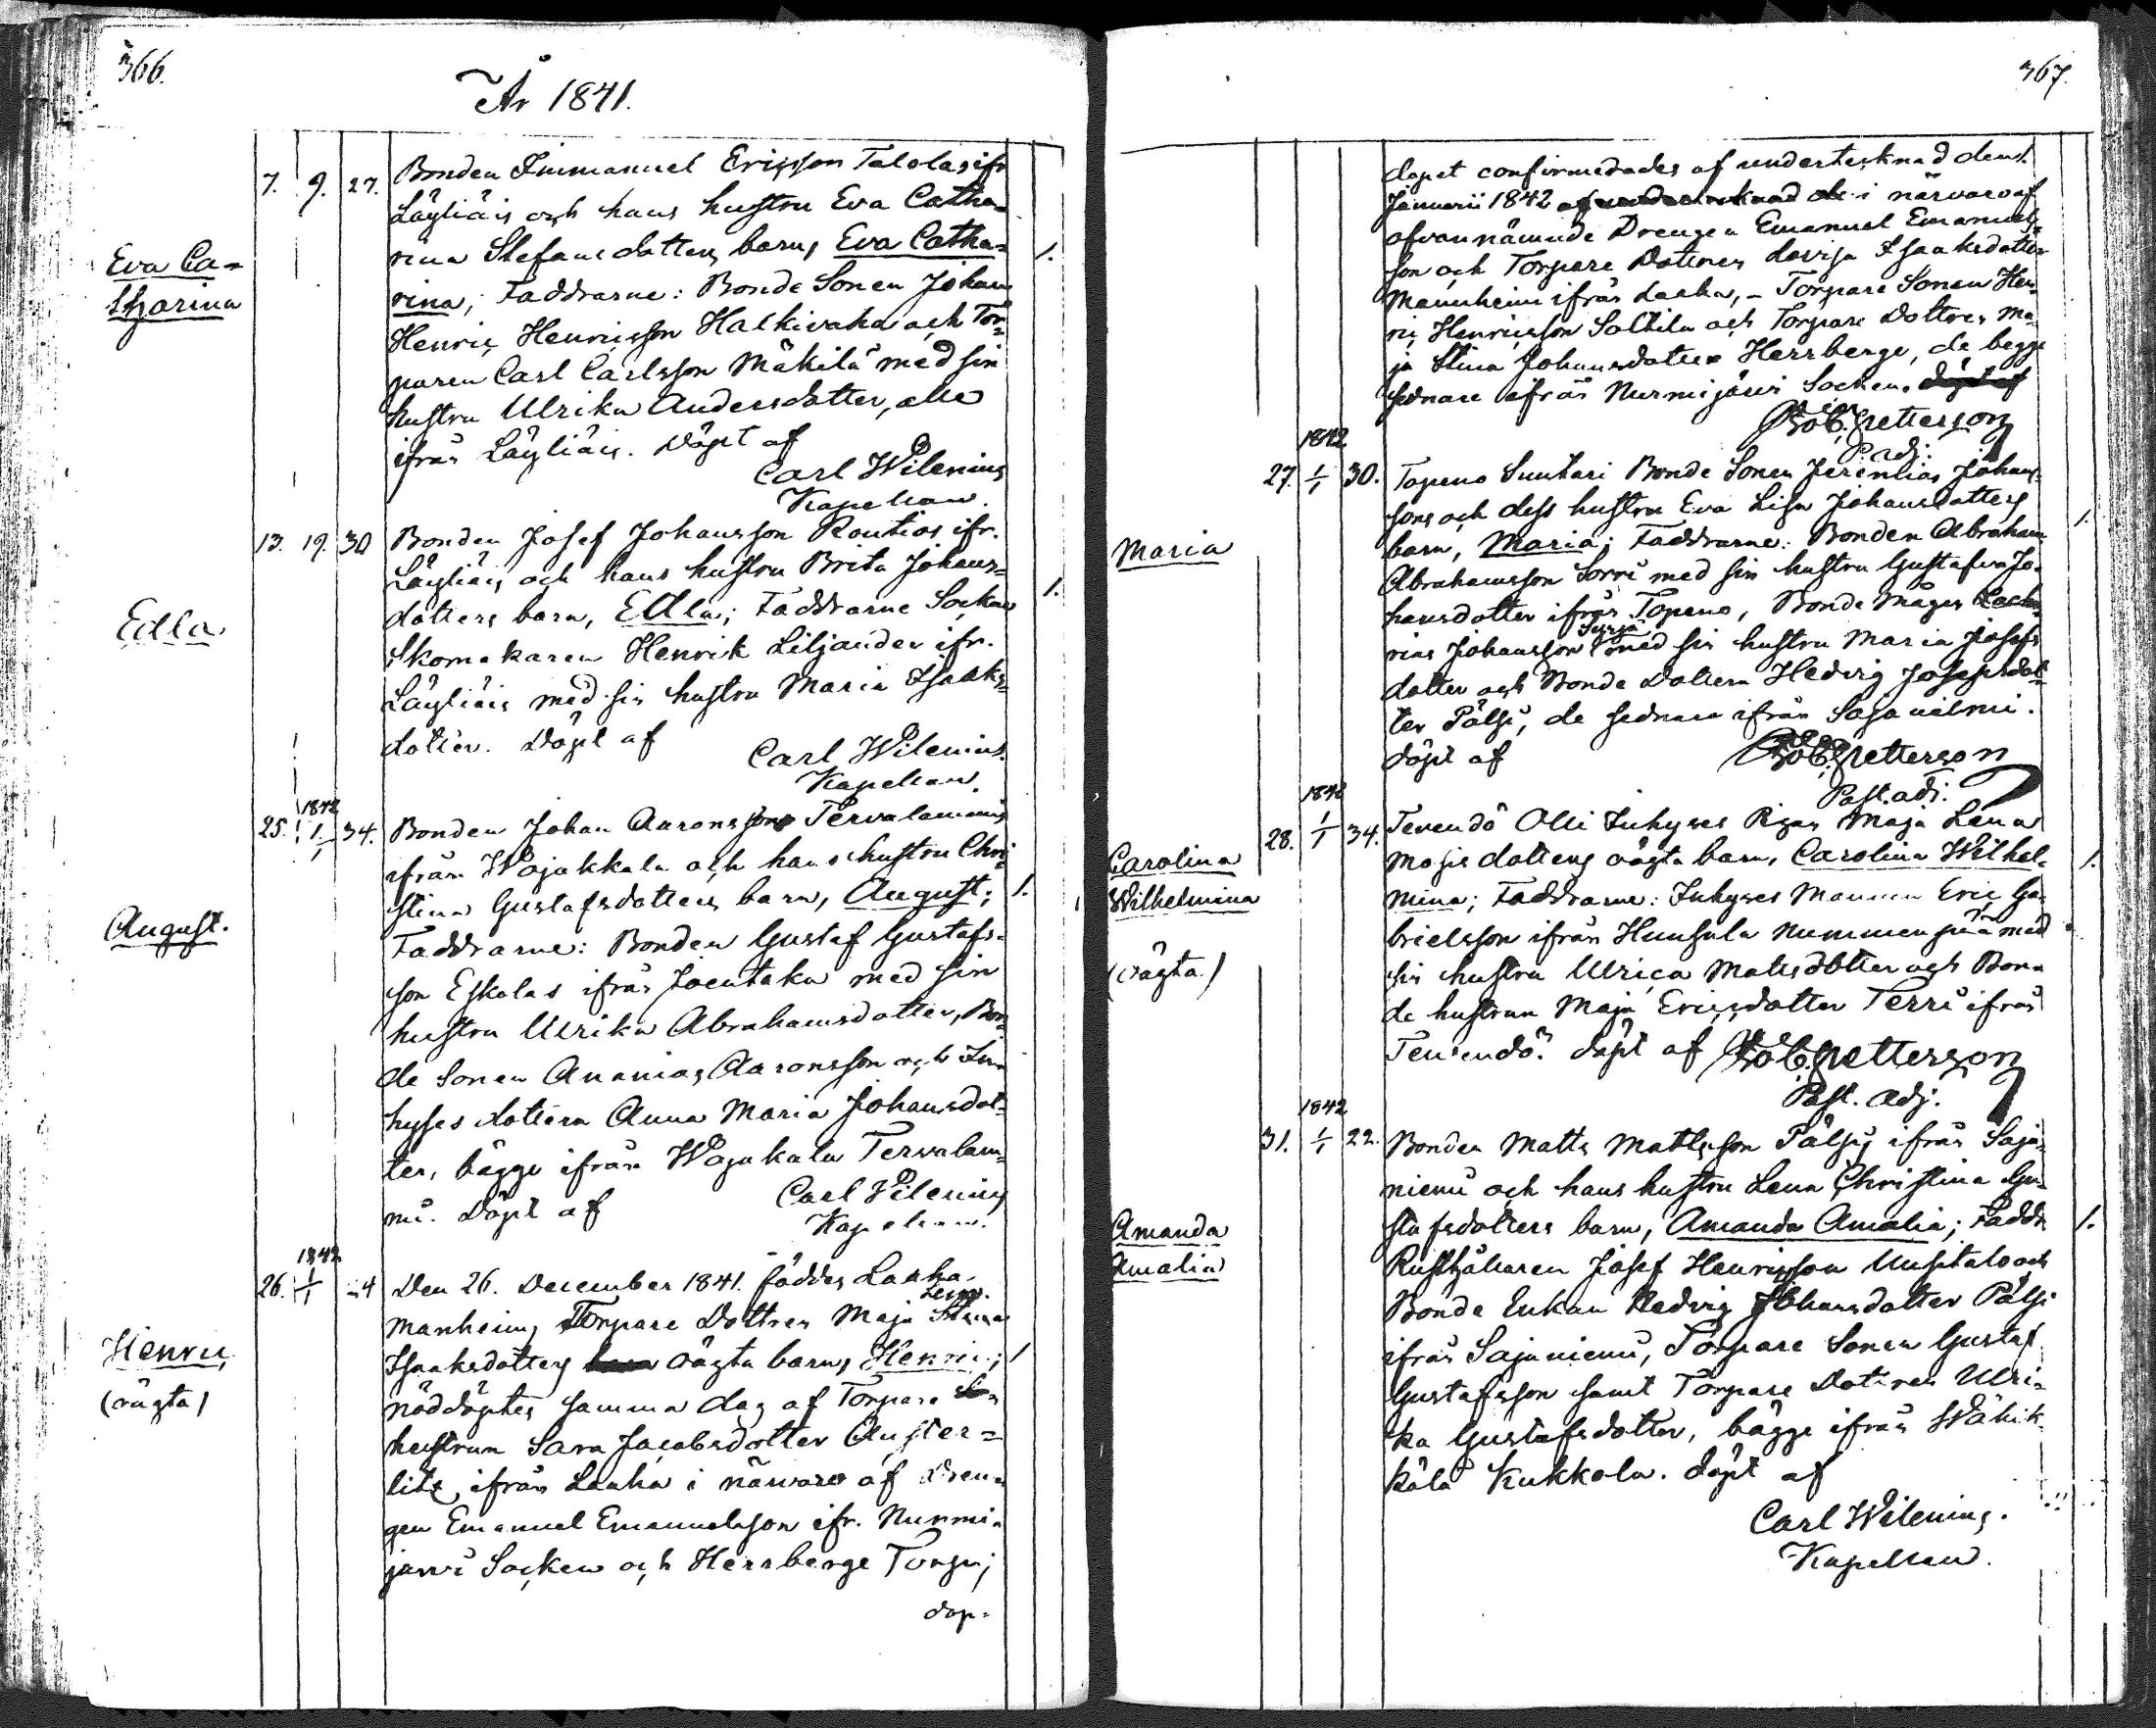 366.
År 1841.
7. 9. 27. Bonden Immanuel Ericsson Talolas ifr
Läyliäis och hans hustru Eva Catha-
Eva Ca-
tharina
rina Stefansdotters barn, Eva Catha- 1.
rina; Faddrarne: Bonde Sonen Johan
Henric Henricsson Halkivaha och Tor-
paren Carl Carlsson Mäkilä med sin
hustru Ulrika Andersdotter, alle
ifrån Läyliäis. Döpt af
Carl Wilenius
Kapellan.
13. 19. 30 Bonden Josef Johansson Routios ifr.
Läyliäis och hans hustru Brita Johans-
Edla
dotters barn, Edla; Faddrarne Socken 1.
Skomakaren Henrik Liljander ifr.
Läyliäis med sin hustru Maria Isaks-
dotter. Döpt af
Carl Wilenius.
Kapellan.
1842
25. 1/1 34. Bonden Johan Aaronssons Tervalammi
ifrån Wojakkala och hans hustru Chri-
stina Gustafsdotters barn, August; 1.
August.
Faddrarne: Bonden Gustaf Gustafs-
son Eskolas ifrån Joentaka med sin
hustru Ulrika Abrahamsdotter, Bon-
de Sonen Ananias Aaronsson och In-
hyses dottern Anna Maria Johansdot-
ter, bägge ifrån Wojakala Tervalam-
mi. Döpt af
Carl Wilenius
Kapellan.
1842
26. 1/1 24 Den 26. December 1841. föddes Laaka
Lena.
Manheims Torpare Dottren Maja Stina
Henric,
(oägta)
Isaaksdotters oägta barn, Henric; 1
nöddöptes samma dag af Torpare
hustrun Sara Jacobsdotter Auster-
litz ifrån Laaka i närvaro af Dren-
gen Emanuel Emanuelsson ifr. Nurmi-
järvi Socken och Herrberge Torp;
dop-
367.
dopet confirmerades af undertecknad den 1.
Januarii 1842 af undertecknad de i närvaro af
ofvannämnde Drengen Emanuel Emanuels-
son och Torpare Dottren Lovisa Isaaksdotter
Mannheim ifrån Laaka, - Torpare Sonen Hen-
ric Henricsson Soltila och Torpare Dottren Ma-
ja Stina Johansdotter Herrberge, de begge
sednare ifrån Nurmijärvi Socken.
Rob. Petterson
P. adj.
1842
27. 1/1 30. Topeno Suntari Bonde Sonen Jeremias Johans-
sons och dess hustru Eva Lisa Johansdotters 1.
Maria
barn, Maria; Faddrarne: Bonden Abraham
Abrahamsson Sorri med sin hustru Gustafva Jo-
hansdotter ifrån Topeno, Bonde Mågen Zacha-
rias Johansson med sin hustru Maria Josefs
dotter och Bonde Dottern Hedvig Josefsdot-
ter Pälsi, de sednare ifrån Sajaniemi.
döpt af
Rob. Petterson
Past. adj.
1842
28. 1/1 34. Tevendö Olli Inhyses Pigan Maja Lena
Carolina
Wilhelmina
(oägta)
Matsdotters oägta barn, Carolina Wilhel- 1.
mina; Faddrarne: Inhyses Mannen Eric Ga-
brielsson ifrån Hunsala Nummenpää med
sin hustru Ulrica Matsdotter och Bon-
de hustrun Maja Ericsdotter Terri ifrån
Tevendö. döpt af Rob. Petterson
Past. Adj.
1842
31. 1/1 22. Bonden Matts Mattsson Pälsis ifrån Saja-
niemi och hans hustru Lena Christina Gu-
Amanda
Amalia
stafsdotters barn, Amanda Amalia; Faddr 1.
Rusthållaren Josef Henricsson Uusitalo och
Bonde Enkan Hedvig Johansdotter Pälsi
ifrån Sajaniemi, Torpare Sonen Gustaf
Gustafsson samt Torpare Dottren Ulri-
ka Gustafsdotter, bägge ifrån Wähik-
kälä Kukkola. döpt af
Carl Wilenius.
Kapellan.